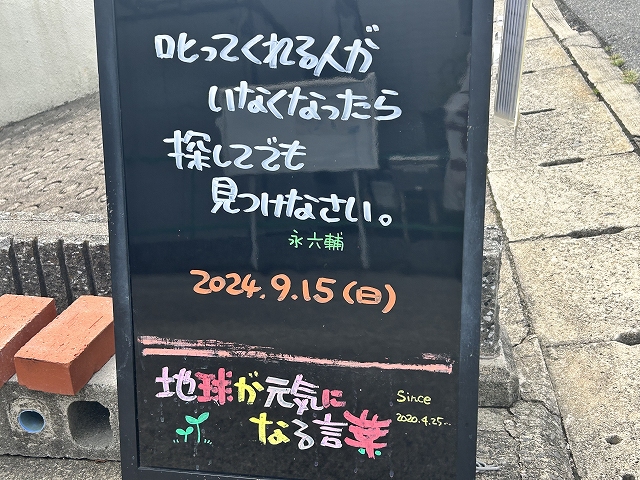 叱ってくれる人が
いなくなったら
探してでも
見つけなさい。
永六輔
2024.9.15(日)
地球が元気に
なる言葉
Since
2020.4.25~